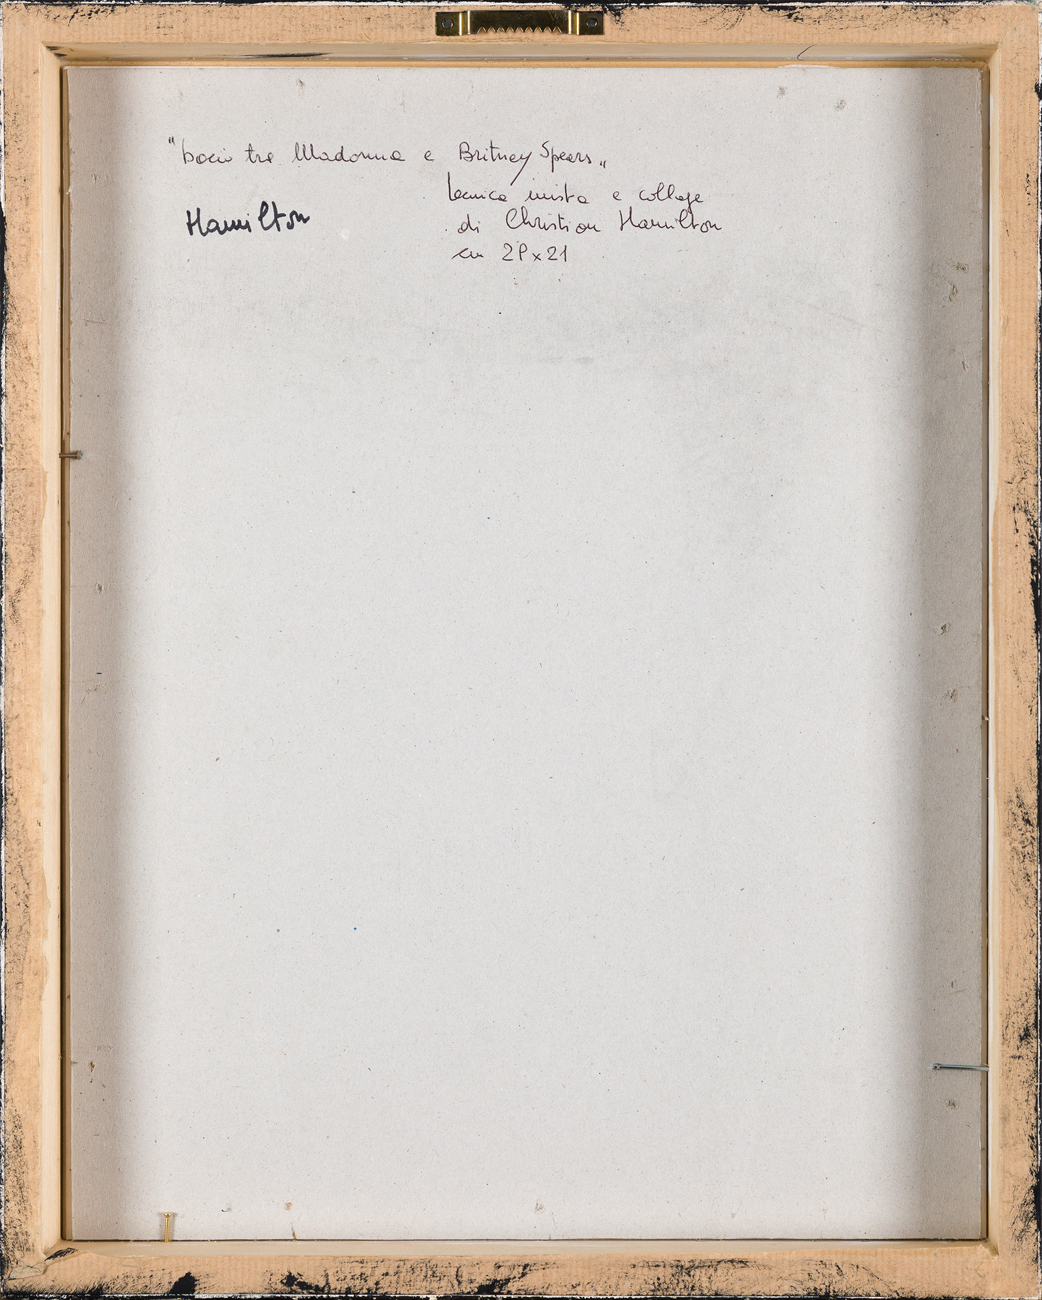 "bacio tra Madonna e Britney Spears"
tecnica mista e collage
Hamilton
di Christian Hamilton
cm 28x21